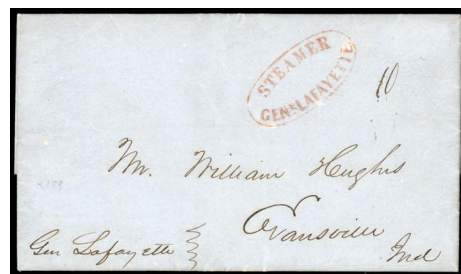 STEAMER
GENL LAFAYETTE
10
Mr. William Hughs
Evansville
Ind
Gen Lafayette